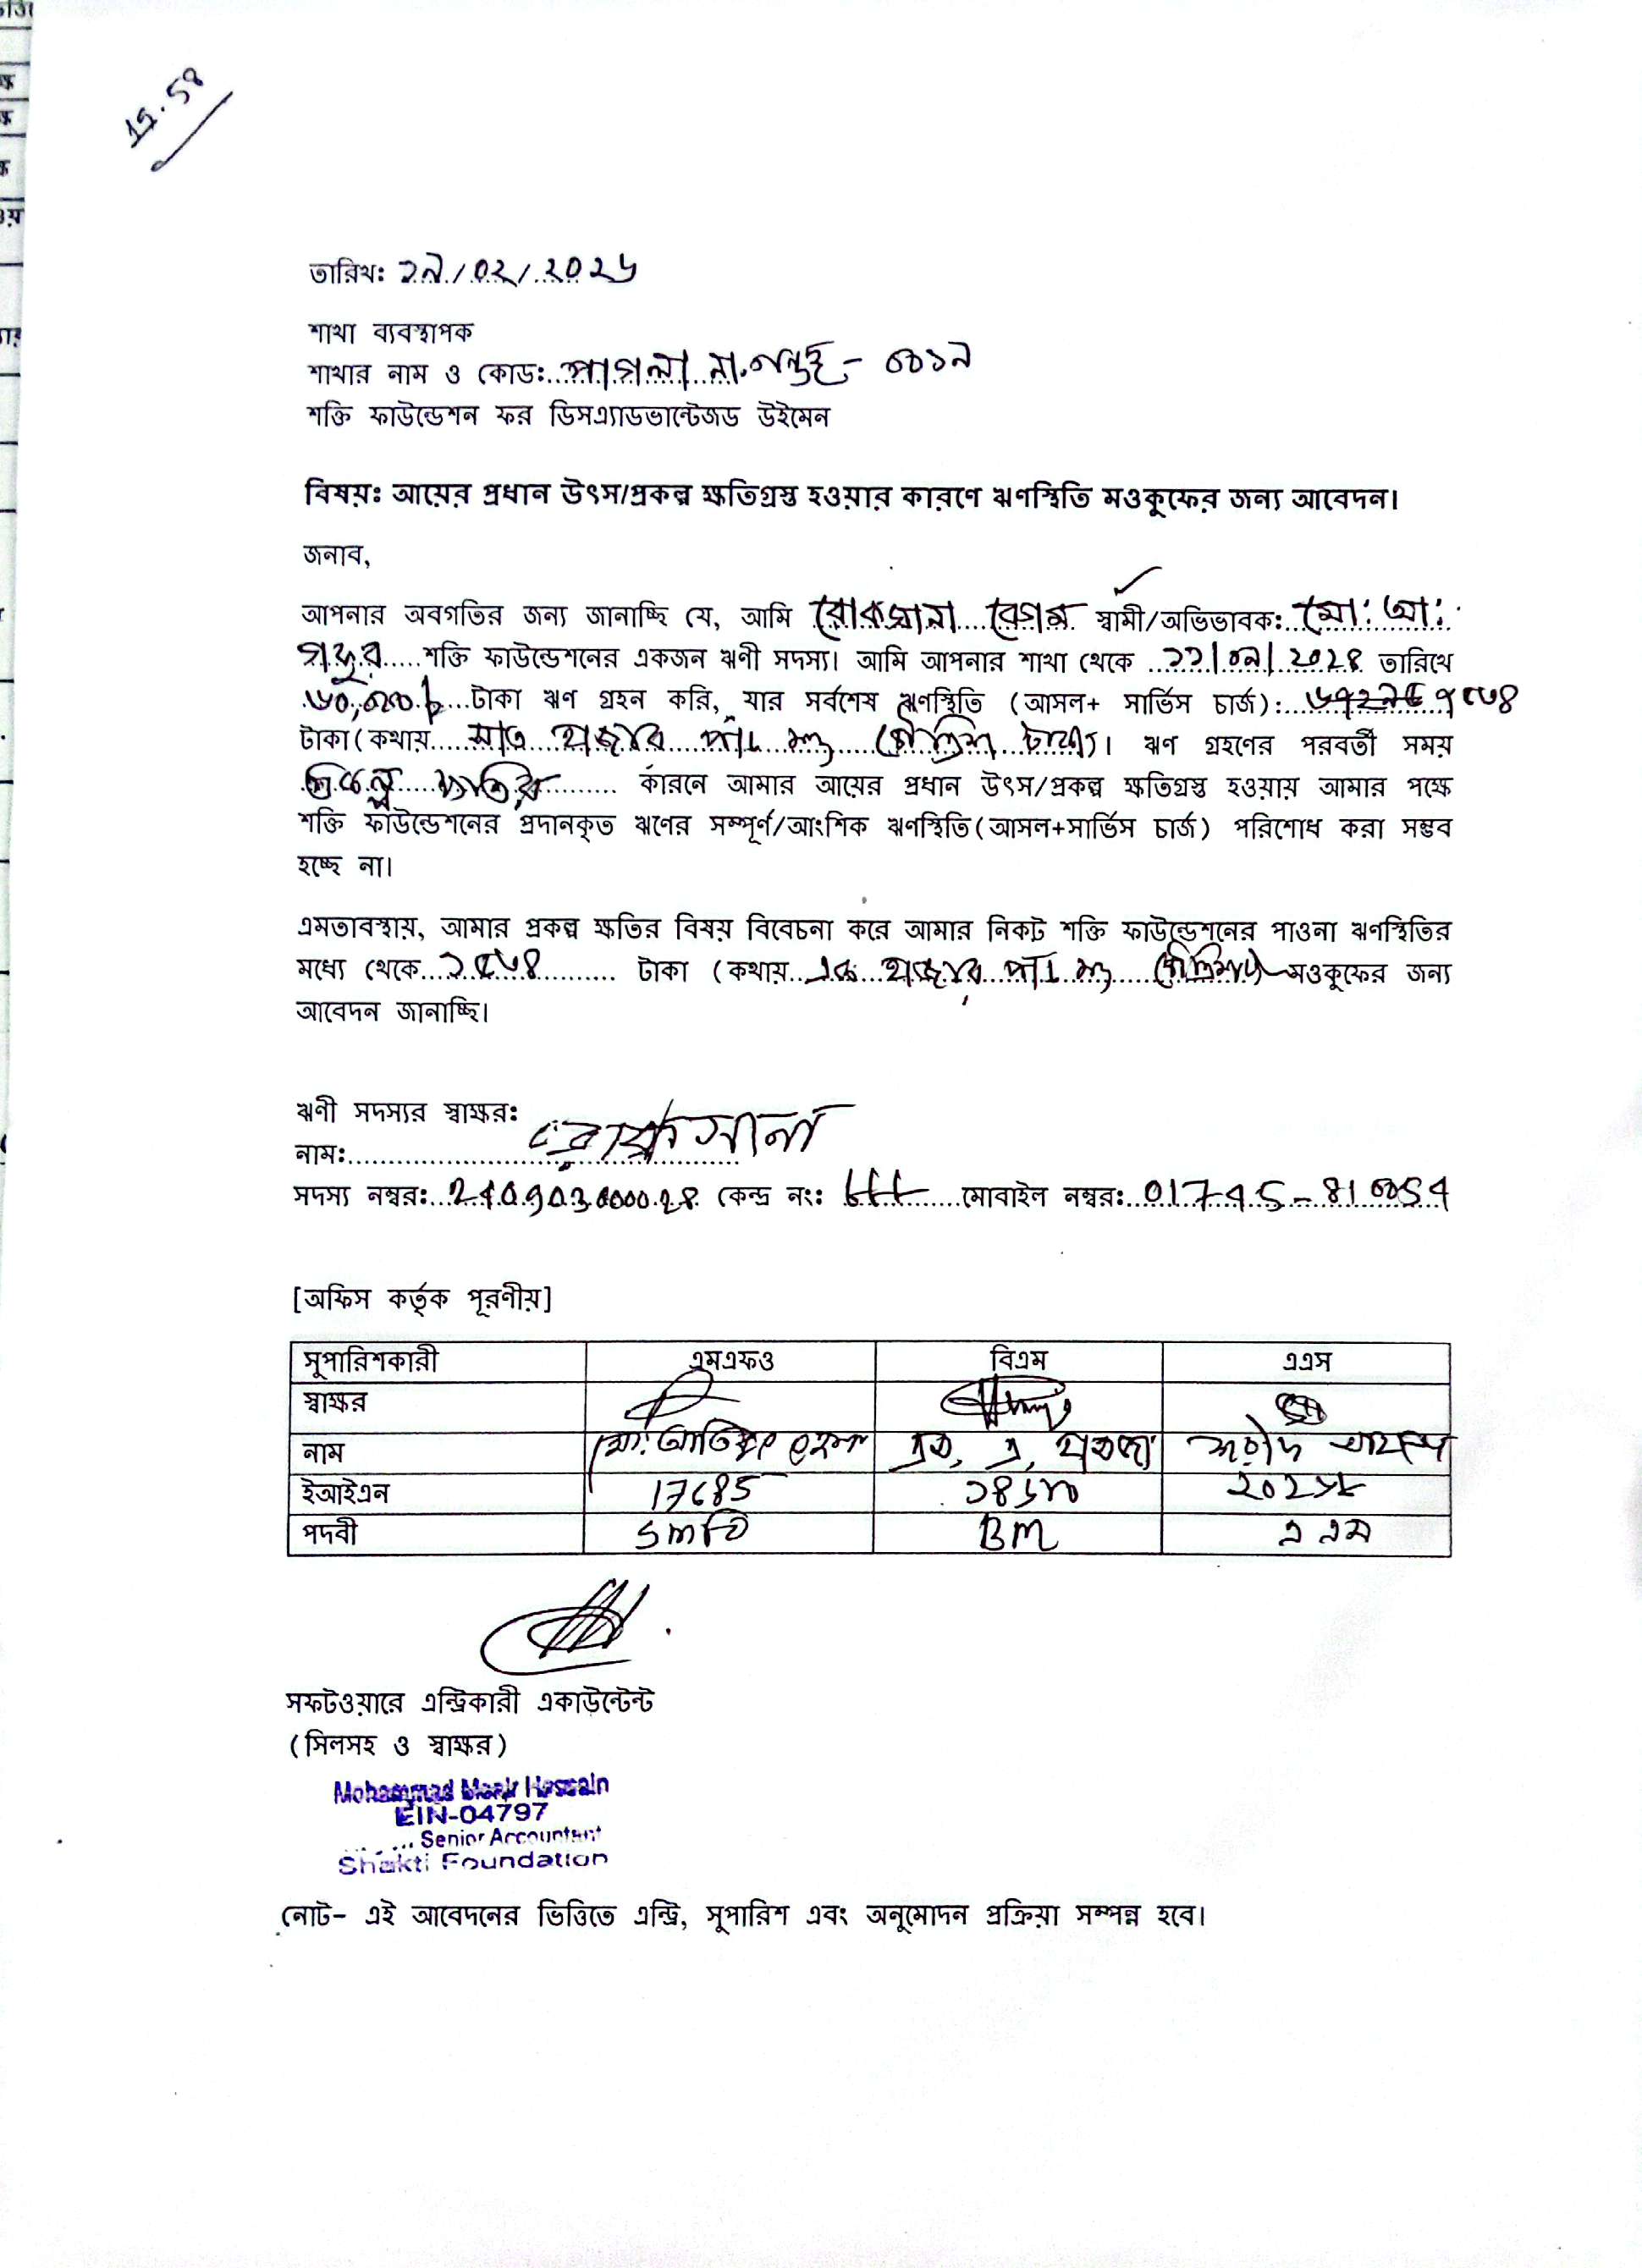 তারিখ: ১৯/০২/২০২৬
শাখা ব্যবস্থাপক
শাখার নাম ও কোড: পাগলা না.গঞ্জ -
শক্তি ফাউন্ডেশন ফর ডিসএ্যাডভান্টেজড উইমেন
বিষয়: আয়ের প্রধান উৎস/প্রকল্প ক্ষতিগ্রস্ত হওয়ার কারণে ঋণস্থিতি মওকুফের জন্য আবেদন।
জনাব,
আপনার অবগতির জন্য জানাচ্ছি যে, আমি রোকসানা বেগম স্বামী/অভিভাবক: মো: আ:
গফুর শক্তি ফাউন্ডেশনের একজন ঋণী সদস্য। আমি আপনার শাখা থেকে ১১/০৯/২০২৪ তারিখে
৬০,০০০/ টাকা ঋণ গ্রহন করি, যার সর্বশেষ ঋণস্থিতি (আসল+ সার্ভিস চার্জ): ৭৫৩৪
টাকা(কথায় সাত হাজার পাঁচ শত চৌত্রিশ টাকা)। ঋণ গ্রহণের পরবর্তী সময়
প্রকল্প ক্ষতির কারনে আমার আয়ের প্রধান উৎস/প্রকল্প ক্ষতিগ্রস্ত হওয়ায় আমার পক্ষে
শক্তি ফাউন্ডেশনের প্রদানকৃত ঋণের সম্পূর্ণ/আংশিক ঋণস্থিতি(আসল+সার্ভিস চার্জ) পরিশোধ করা সম্ভব
হচ্ছে না।
এমতাবস্থায়, আমার প্রকল্প ক্ষতির বিষয় বিবেচনা করে আমার নিকট শক্তি ফাউন্ডেশনের পাওনা ঋণস্থিতির
মধ্যে থেকে ১৫৩৪ টাকা (কথায় এক হাজার পাঁচ শত চৌত্রিশ) মওকুফের জন্য
আবেদন জানাচ্ছি।
ঋণী সদস্যর স্বাক্ষর:
নাম: রোকসানা
সদস্য নম্বর: কেন্দ্র নং: মোবাইল নম্বর:
[অফিস কর্তৃক পূরণীয়]
সুপারিশকারী এমএফও বিএম এএস
স্বাক্ষর
নাম মো:
ইআইএন 17685
পদবী SMFO BM এ এস
সফটওয়ারে এন্ট্রিকারী একাউন্টেন্ট
(সিলসহ ও স্বাক্ষর)
Mohammad Hossain
EIN-04797
Senior Accountant
Shakti Foundation
নোট- এই আবেদনের ভিত্তিতে এন্ট্রি, সুপারিশ এবং অনুমোদন প্রক্রিয়া সম্পন্ন হবে।